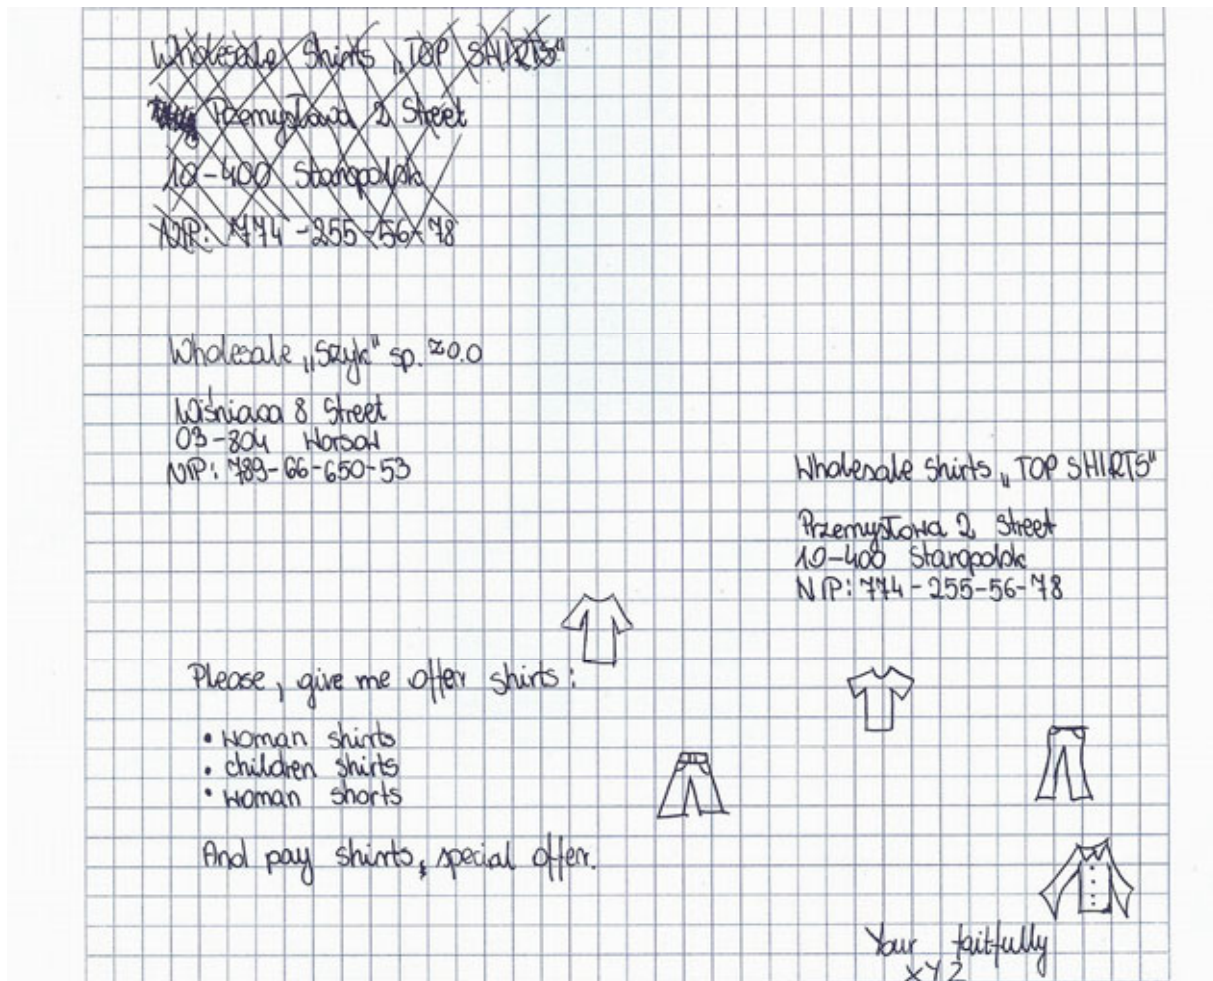 Wholesale Shirts „TOP SHIRTS"
Przemysłowa 2 Street
10-400 Staropolsk
NIP: 774-255-56-78
Wholesale „Szyk" sp. z o.o
Wiśniowa 8 Street
03-804 Warsaw
NIP: 789-66-650-53
Wholesale Shirts „TOP SHIRTS"
Przemysłowa 2 Street
10-400 Staropolsk
NIP: 774-255-56-78
Please, give me offer shirts:
• woman shirts
• children shirts
• woman shorts
And pay shirts, special offer.
Your faitfully
XYZ